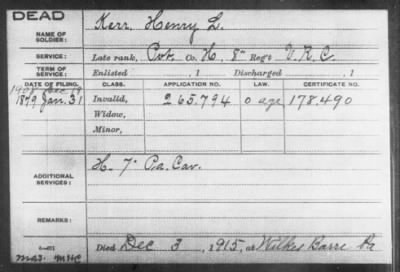 DEAD
NAME OF SOLDIER: Kerr, Henry L.
SERVICE: Late rank, Pvt. Co. H. 8" Reg't V.R.C.
TERM OF SERVICE: Enlisted , 1 Discharged , 1
DATE OF FILING. CLASS. APPLICATION NO. LAW. CERTIFICATE NO.
1879 Jan. 31 Invalid, 265.794 178.490
Widow,
Minor,
ADDITIONAL SERVICES: H. 7" Pa. Cav.
REMARKS:
Died Dec 3, 1915, at Wilkes Barre Pa